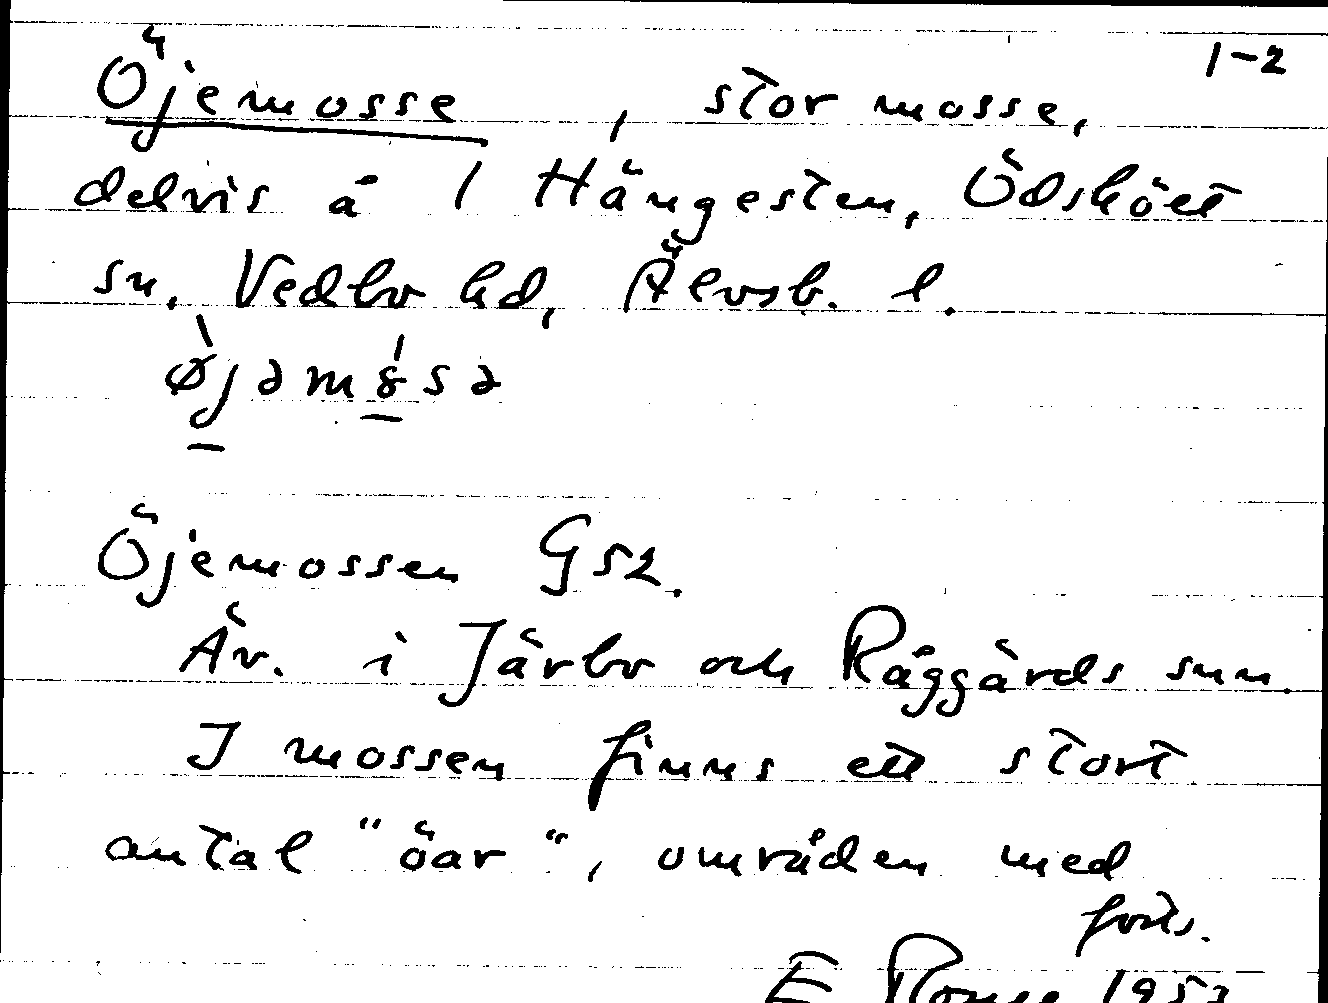 1-2
Öjemosse, stor mosse,
delvis å 1 Hängesten, Ödskölt
sn, Vedbo hd, Älvsb. l.
Öjemossen GSZ.
Äv. i Järbo och Råggärds snn.
I mossen finns ett stort
antal "öar", områden med
forts.
E 195